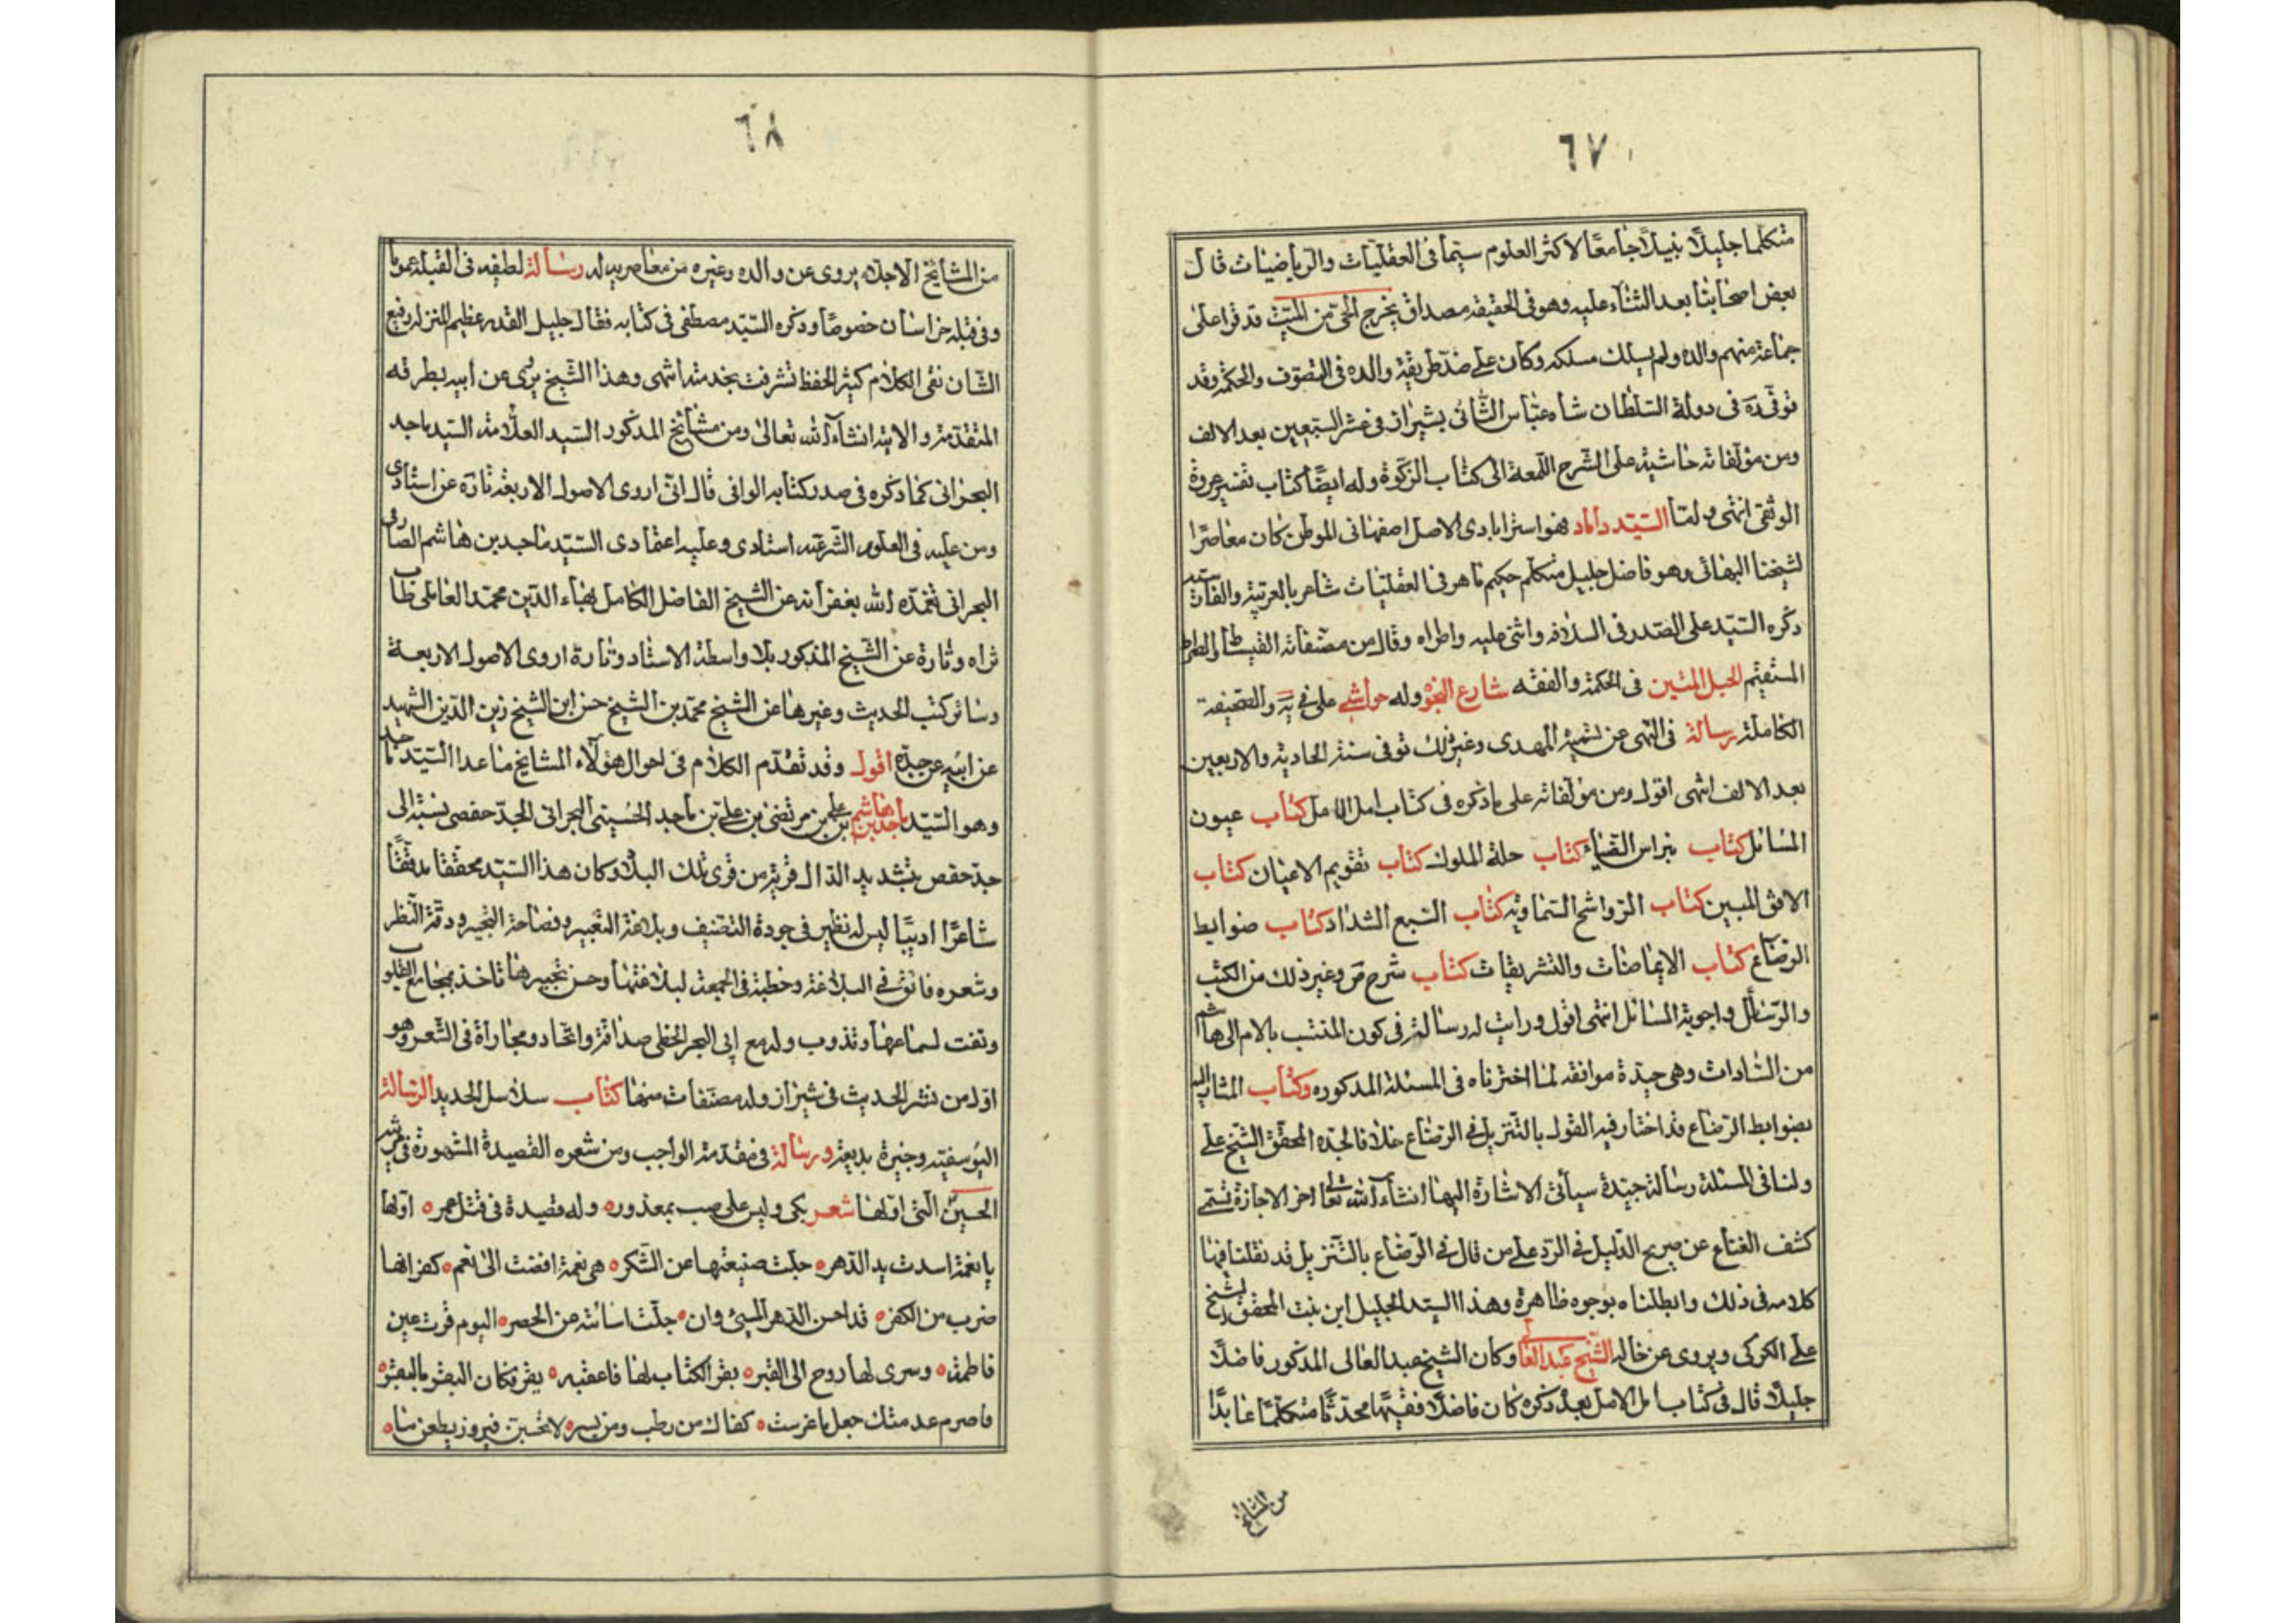 ٦٧
متكلما جليلًا نبيلًا جامعًا لاكثر العلوم سيّما فى العقليات والرياضيات قال
بعض اصحابنا بعد الثناء عليه وهو فى الحقيقة مصداق يخرج الحى من الميّت قد قرا على
جماعة منهم والده ولم يسلك مسلكه وكان على ضدّ طريقة والده فى التصوف والحكمة وقد
توفى ره فى دولة السّلطان شاه عبّاس الثّانى بشيراز فى عشر السّبعين بعد الالف
ومن مؤلفاته حاشية على الشّرح اللمعة الى كتاب الزكوة وله ايضًا كتاب تفسير عروة
الوثقى انتهى و امّا السّيّد داماد فهو استرابادى الاصل اصفهانى الموطن كان معاصرًا
لشيخنا البهائى وهو فاضل جليل متكلّم حكيم ماهر فى العقليّات شاعر بالعربيّة والفارسيّة
ذكره السّيّد على الصّدر فى السلافه واثنى عليه واطراه وقال من مصنّفاته القبسات والصراط
المستقيم الحبل المتين فى الحكمة والفقه شارع النجوة وله حواشى على فى يه والصّحيفة
الكاملة رسالة فى النّهى عن تسمية المهدى وغير ذلك توفى سنة الحادية والاربعين
بعد الالف انتهى اقول ومن مؤلفاته على ما ذكره فى كتاب امل الامل كتاب عيون
المسائل كتاب نبراس الضياء كتاب خلة الملوك كتاب تقويم الايمان كتاب
الافق المبين كتاب الرّواشح السّماويّه كتاب السّبع الشداد كتاب ضوابط
الرضاع كتاب الايماضات والتشريقات كتاب شرح ص وغير ذلك من الكتب
والرّسائل واجوبة المسائل انتهى اقول ورايت له رسالة فى كون المنتسب بالام الى هاشم
من السّادات وهى جيّدة موافقه لما اخترناه فى المسئلة المذكوره وكتاب المشاراليه
بضوابط الرّضاع قد اختار فيه القول بالتنزيل فى الرضاع خلافا لجدّه المحقّق الشّيخ على
ولنا فى المسئلة رسالة جيّدة سيأتى الاشارة اليها انشاء الله تعالى اخر الاجازة تسمّى
كشف القناع عن صريح الدّليل فى الرّد على من قال فى الرّضاع بالتّنزيل قد نقلنا فيها
كلامه فى ذلك وابطلناه بوجوه ظاهرة وهذا السيّد الجليل ابن بنت المحقّق الشيخ
على الكركى ويروى عن خاله الشّيخ عبد العالى وكان الشيخ عبد العالى المذكور فاضلًا
جليلًا قال فى كتاب امل الامل بعد ذكره كان فاضلًا فقيهًا محدّثًا متكلّمًا عابدًا
من المشايخ
٦٨
من المشايخ الاجلاء يروى عن والده وغيره من معاصريه له رسالة لطيفه فى القبلة عمومًا
وفى قبلة خراسان خصوصًا وذكره السّيّد مصطفى فى كتابه فقال جليل القدر عظيم المنزلة رفيع
الشّان نقى الكلام كثير الحفظ تشرفت بخدمته انتهى وهذا الشّيخ يروى عن ابيه بطرقه
المتقدّمة والاتية انشاء الله تعالى ومن مشايخ المذكور السّيد العلّامة السّيد ماجد
البحرانى كما ذكره فى صدر كتابه الوافى قال انّى اروى الاصول الاربعة تارة عن استادى
ومن عليه فى العلوم الشّرعيّه استنادى وعليه اعتمادى السّيّد ماجد بن هاشم الصّادقى
البحرانى تغمّده الله بغفرانه عن الشّيخ الفاضل الكامل بهاء الدّين محمّد العاملى طاب
ثراه وتارة عن الشّيخ المذكور بلا واسطة الاستاد وتارة اروى الاصول الاربعة
وسائر كتب الحديث وغيرها عن الشّيخ محمّد بن الشّيخ حسن ابن الشّيخ زين الدّين الشّهيد
عن ابيه عن جدّه اقول وقد تقدّم الكلام فى احوال هؤلاء المشايخ ما عدا السّيّد ماجد
وهو السّيّد ماجد بن هاشم بن على بن مرتضى بن على بن ماجد الحُسينى البحرانى الجدّ حفصى نسبة الى
جدّحفص بتشديد الدّال قرية من قرى تلك البلاد وكان هذا السّيّد محققا مدققًا
شاعرًا اديبًا ليس له نظير فى جودة التصنيف وبلاغة التّعبير وفصاحة التحبير ودقّة النّظر
وشعره فائق فى البلاغة وخطبته فى الجمعة لبلاغتها وحسن تحبيرها تاخذ بمجامع القلوب
وتفت لسماعها وتذوب وله مع ابى البحر الخطى صداقة واتحاد ومجاراة فى الشّعر وهو
اوّل من نشر الحديث فى شيراز وله مصنّفات منها كتاب سلاسل الحديد الرّسالة
اليوسفيّه وجيزة بديعة ورسالة فى مقدّمة الواجب ومن شعره القصيدة المشهورة فى مرثية
الحسينّ الّتى اوّلها شعر بكى وليس على صب بمعذوره وله قصيدة فى قتل عمر اوّلها
يا نعمة اسدت يد الدّهر جلت صنيعتها عن الشّكر هى نعمة افضت الى نعم كفرانها
ضرب من الكفر قد احسن الدّهر المسىء وان جلّت اسائته عن الحصر اليوم قرت عين
فاطمة وسرى لها روح الى القبر بقر الكتاب لها فاعقبه بقر فكان البقر بالبقر
فاصرم عدمتك حبل ما غرست كفاك من رطب ومن بسر لا تحسبن فيروز يطعن